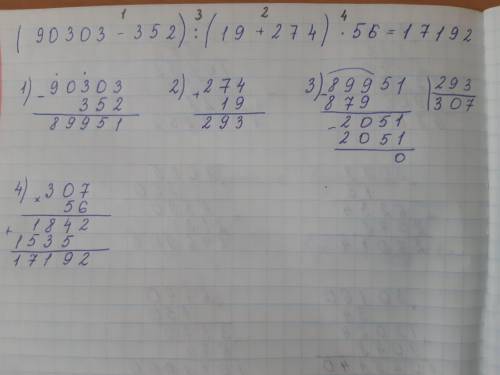 1 3 2 4
(90303-352):(19+274)·56=17192
1) -90303
352
89951
2) +274
19
293
3) -89951 |293
879 307
-2051
2051
0
4) ×307
56
+1842
1535
17192